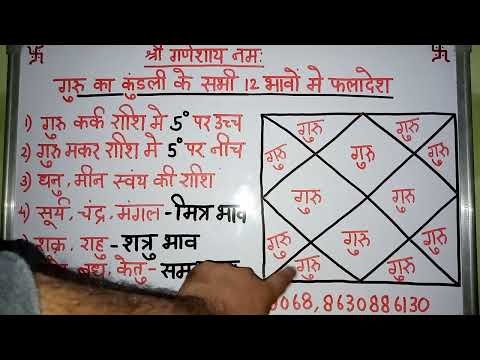 श्री गणेशाय नमः
गुरु का कुंडली के सभी 12 भावों मे फलादेश
1) गुरु कर्क राशि मे 5° पर उच्च
2) गुरु मकर राशि मे 5° पर नीच
3) धनु, मीन स्वंय की राशि
4) सूर्य, चंद्र, मंगल - मित्र भाव
शुक्र, राहु - शत्रु भाव
बुध, केतु - सम
गुरु गुरु
गुरु गुरु गुरु
गुरु गुरु
गुरु गुरु गुरु
गुरु गुरु
0068, 8630886130